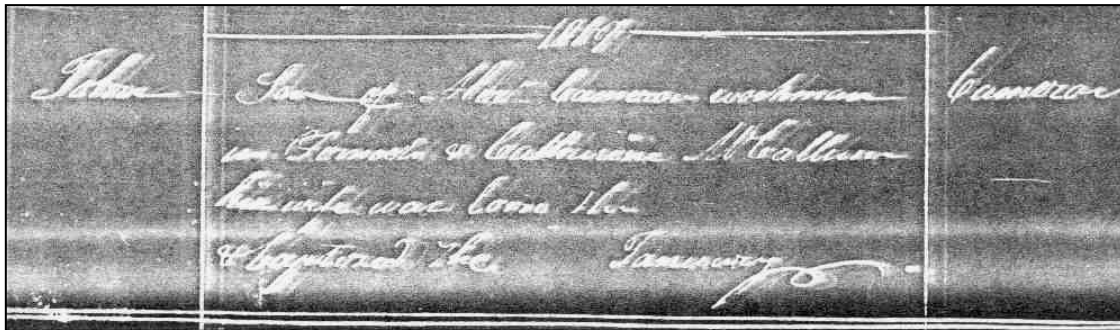 John
Son of Alexr Cameron workman
in & Catherine McCallum
his wife was born the
& baptized the January
Cameron